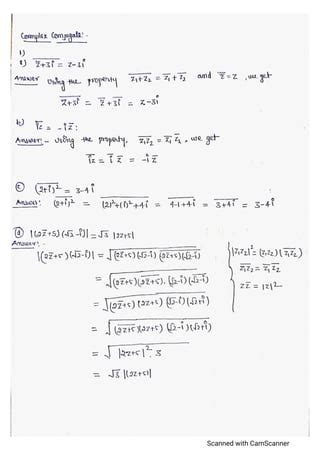 Complex Conjugate:-
1)
a) \overline{\overline{z}+3i} = z-3i
Answer Using the property \overline{z_1+z_2} = \overline{z_1}+\overline{z_2} and \overline{\overline{z}}=z, we get
\overline{\overline{z}+3i} = \overline{\overline{z}}+\overline{3i} = z-3i
b) \overline{iz} = -i\overline{z}:
Answer:- Using the property, \overline{z_1z_2} = \overline{z_1} \overline{z_2}, we get
\overline{iz} = \overline{i} \overline{z} = -i\overline{z}
c) \overline{(2+i)^2} = 3-4i
Answer: \overline{(2+i)^2} = \overline{(2)^2+(i)^2+4i} = \overline{4-1+4i} = \overline{3+4i} = 3-4i
d) |(2\overline{z}+5)(√2-i)| = √3 |2z+5|
Answer:-
|(2\overline{z}+5)(√2-i)| = √(2\overline{z}+5)(√2-i) \overline{(2\overline{z}+5)(√2-i)}
= √(2\overline{z}+5)\overline{(2\overline{z}+5)}. (√2-i)\overline{(√2-i)}
= √(2\overline{z}+5)(2z+5) (√2-i)(√2+i)
= √\overline{(2z+5)}(2z+5) (√2-i)(√2+i)
= √|2z+5|^2. 3
= √3 |(2z+5)|
|z_1z_2|^2 = (z_1z_2)(\overline{z_1z_2})
\overline{z_1z_2} = \overline{z_1} \overline{z_2}
z\overline{z} = |z|^2
Scanned with CamScanner